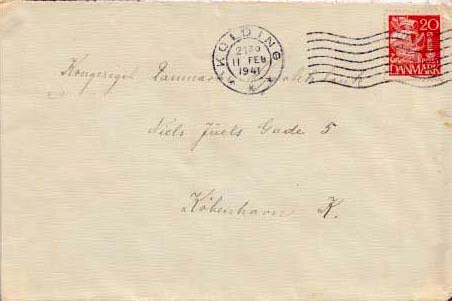 KOLDING
2130
11 FEB
1941
K
20
DANMARK
Kongeriget Danmarks
Niels Juels Gade 5
København K.